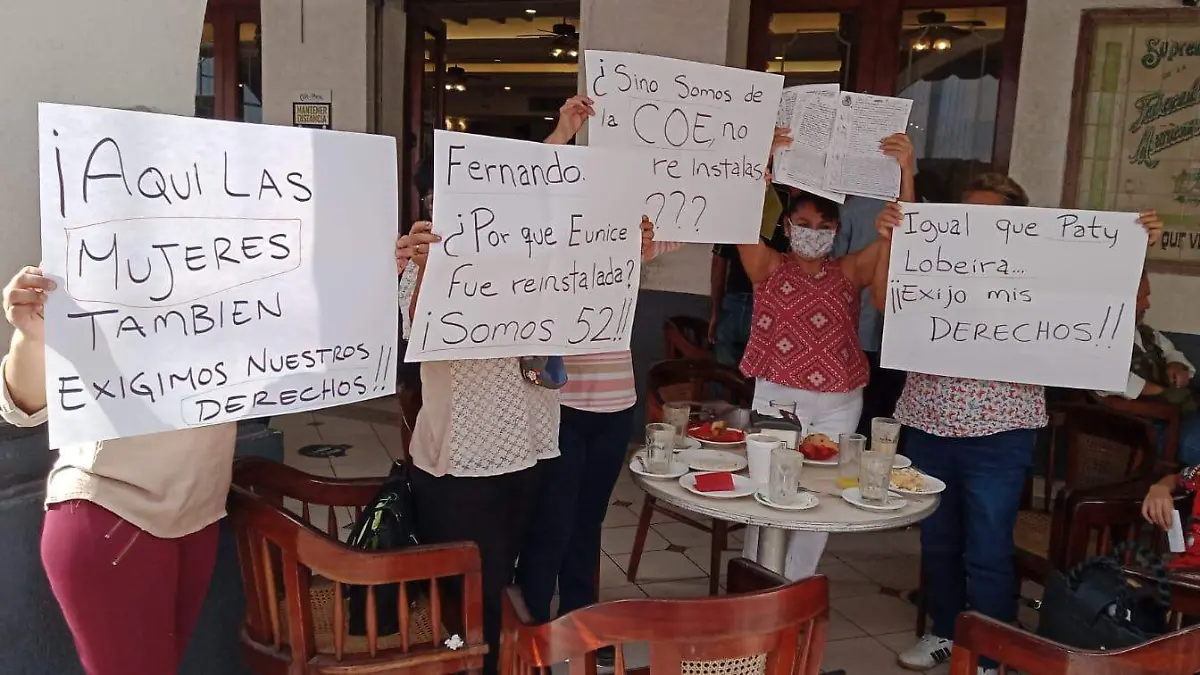 ¡AQUI LAS
MUJERES
TAMBIEN
EXIGIMOS NUESTROS
DERECHOS!!
Fernando.
¿Por que Eunice
fue reinstalada?
¡Somos 52!!
¿Sino Somos de
la COE, no
re instalas
???
Igual que Paty
Lobeira...
¡¡Exijo mis
DERECHOS!!
MANTENER
DISTANCIA